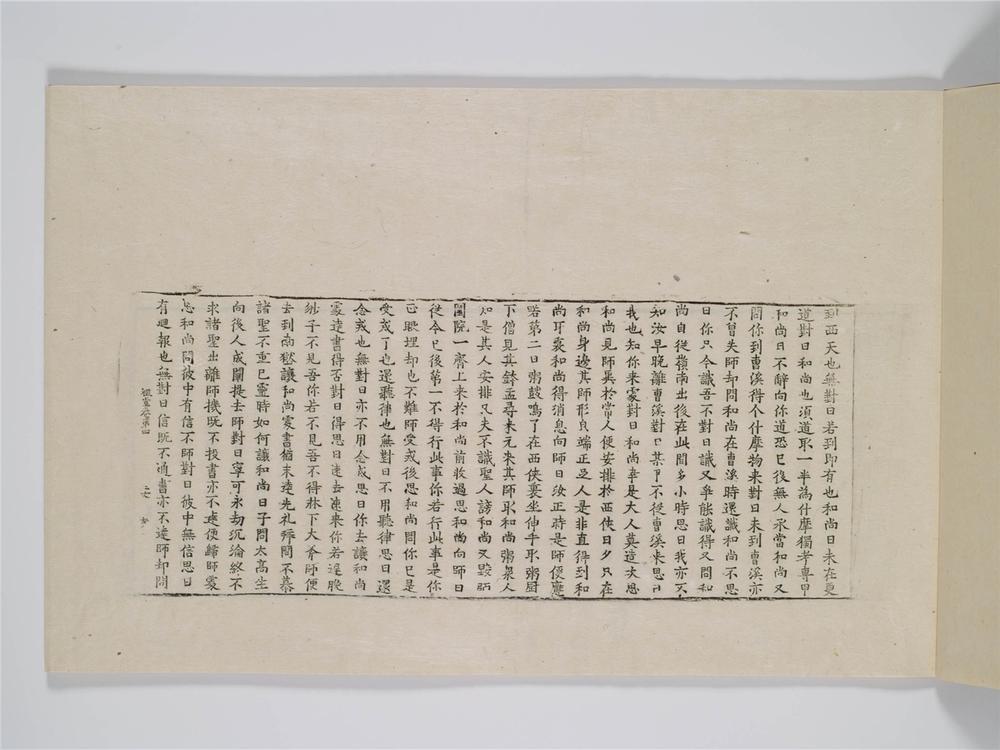 到西天也無對曰若到即有也和尚曰未在更
道對曰和尚也須道取一半為什摩獨考專甲
和尚曰不辞向你道恐已後無人承當和尚又
問你到曹溪得个什摩物來對曰未到曹溪亦
不曾失師却問和尚在曹溪時還識和尚不思
曰你只今識吾不對曰識又爭能識得又問和
尚自從嶺南出後在此間多小時思曰我亦不
知汝早晚離曹溪對曰某甲不從曹溪來思曰
我也知你来處對曰和尚幸是大人莫造次思
和尚見師異於常人便安排於西俠日夕只在
和尚身邊其師形皃端正足人是非直得到和
尚耳裏和尚得消息向師曰汝正時是師便應
喏第二日粥鼓鳴了在西俠裏坐伸手取粥厨
下僧見其鉢盂尋來元來其師取和尚粥衆人
知是其人安排又夫不識聖人謗和尚又毀師
闔院一齊上来於和尚前收過思和尚向師曰
從今已後第一不得行此事你若行此事是你
正眼埋却也不難師受戒後思和尚問你已是
受戒了也還聽律也無對曰不用聽律思曰還
念戒也無對曰亦不用念戒思曰你去讓和尚
處達書得否對曰得思曰速去速来你若遲晚
些子不見吾你若不見吾不得床下大斧師便
去到南嶽讓和尚處書猶未達先礼拜問不慕
諸聖不重己靈時如何讓和尚曰子問太高生
向後人成闡提去師對曰寧可永劫沉淪終不
求諸聖出離師機既不投書亦不達便歸師處
思和尚問彼中有信不師對曰彼中無信思曰
有迴報也無對曰信既不通書亦不達師却問
祖堂卷第四